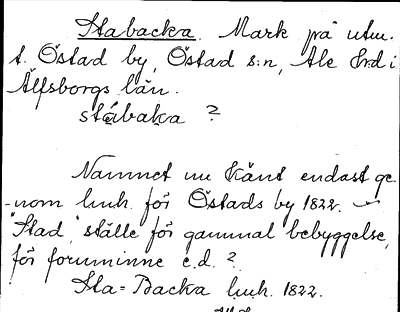 Stabacka. Mark på utm.
t. Östad by, Östad s:n, Ale hrd i
Älfsborgs län.
stábaka ?
Namnet nu känt endast ge-
-nom lmh. för Östads by 1822. –
"Stad", ställe för gammal bebyggelse,
för fornminne e.d. ?
Sta=Backa lmh. 1822.